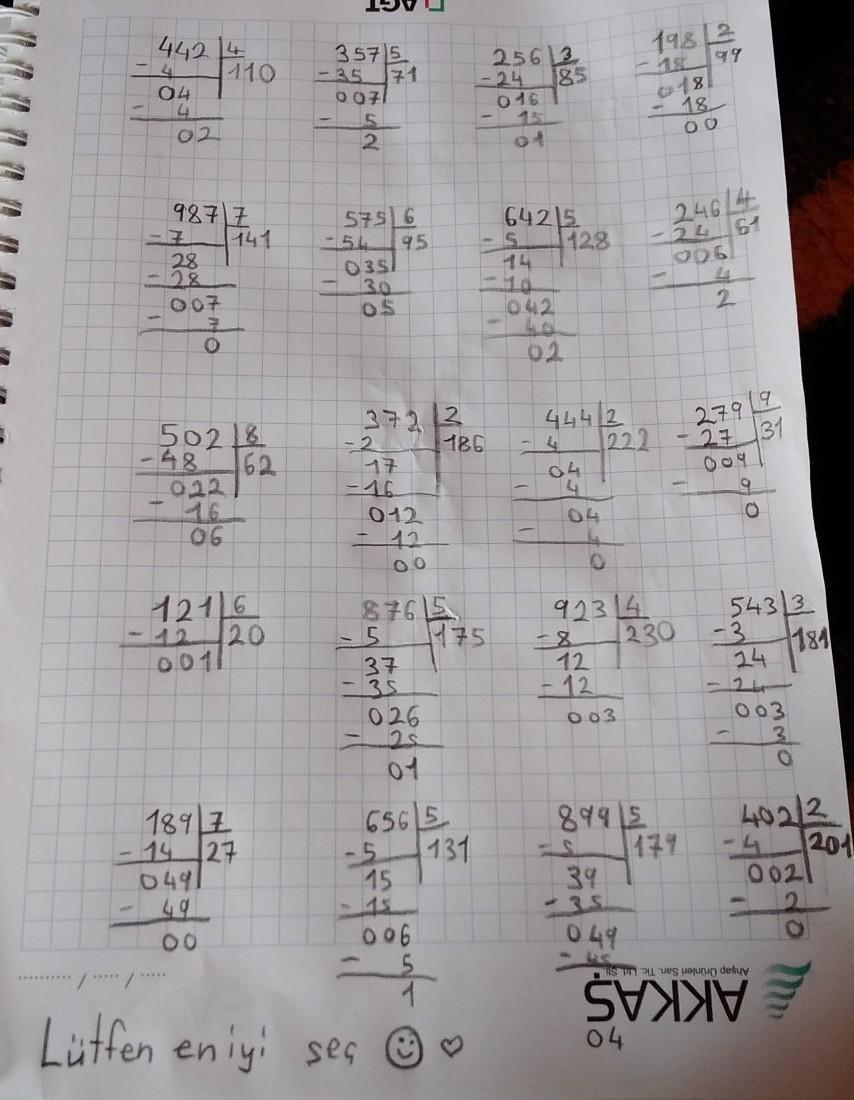 AGT
442 4
- 4 110
04
- 4
02
357 5
-35 71
007
- 5
2
256 3
-24 85
016
- 15
01
198 2
- 18 99
018
- 18
00
987 7
-7 141
28
-28
007
- 7
0
575 6
-54 95
035
- 30
05
642 5
-5 128
14
-10
042
- 40
02
246 4
-24 61
006
- 4
2
502 8
-48 62
022
- 16
06
372 2
-2 186
17
-16
012
- 12
00
444 2
-4 222
04
- 4
04
- 4
0
279 9
-27 31
009
- 9
0
121 6
-12 20
001
876 5
-5 175
37
-35
026
- 25
01
923 4
-8 230
12
-12
003
543 3
-3 181
24
-24
003
- 3
0
189 7
-14 27
049
- 49
00
656 5
-5 131
15
-15
006
- 5
1
899 5
-5 179
39
-35
049
- 45
04
402 2
-4 201
002
- 2
0
...... / ..... / ......
Ahşap Ürünleri San. Tic. Ltd. Şti.
AKKAŞ
Lütfen en iyi seç ☺ ♡